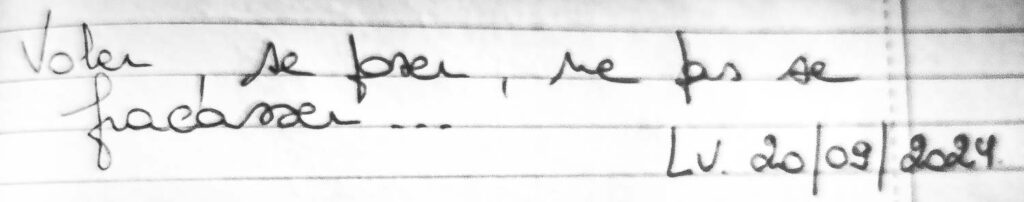 Voler, se poser, ne pas se
fracasser...
LV. 20/09/2024